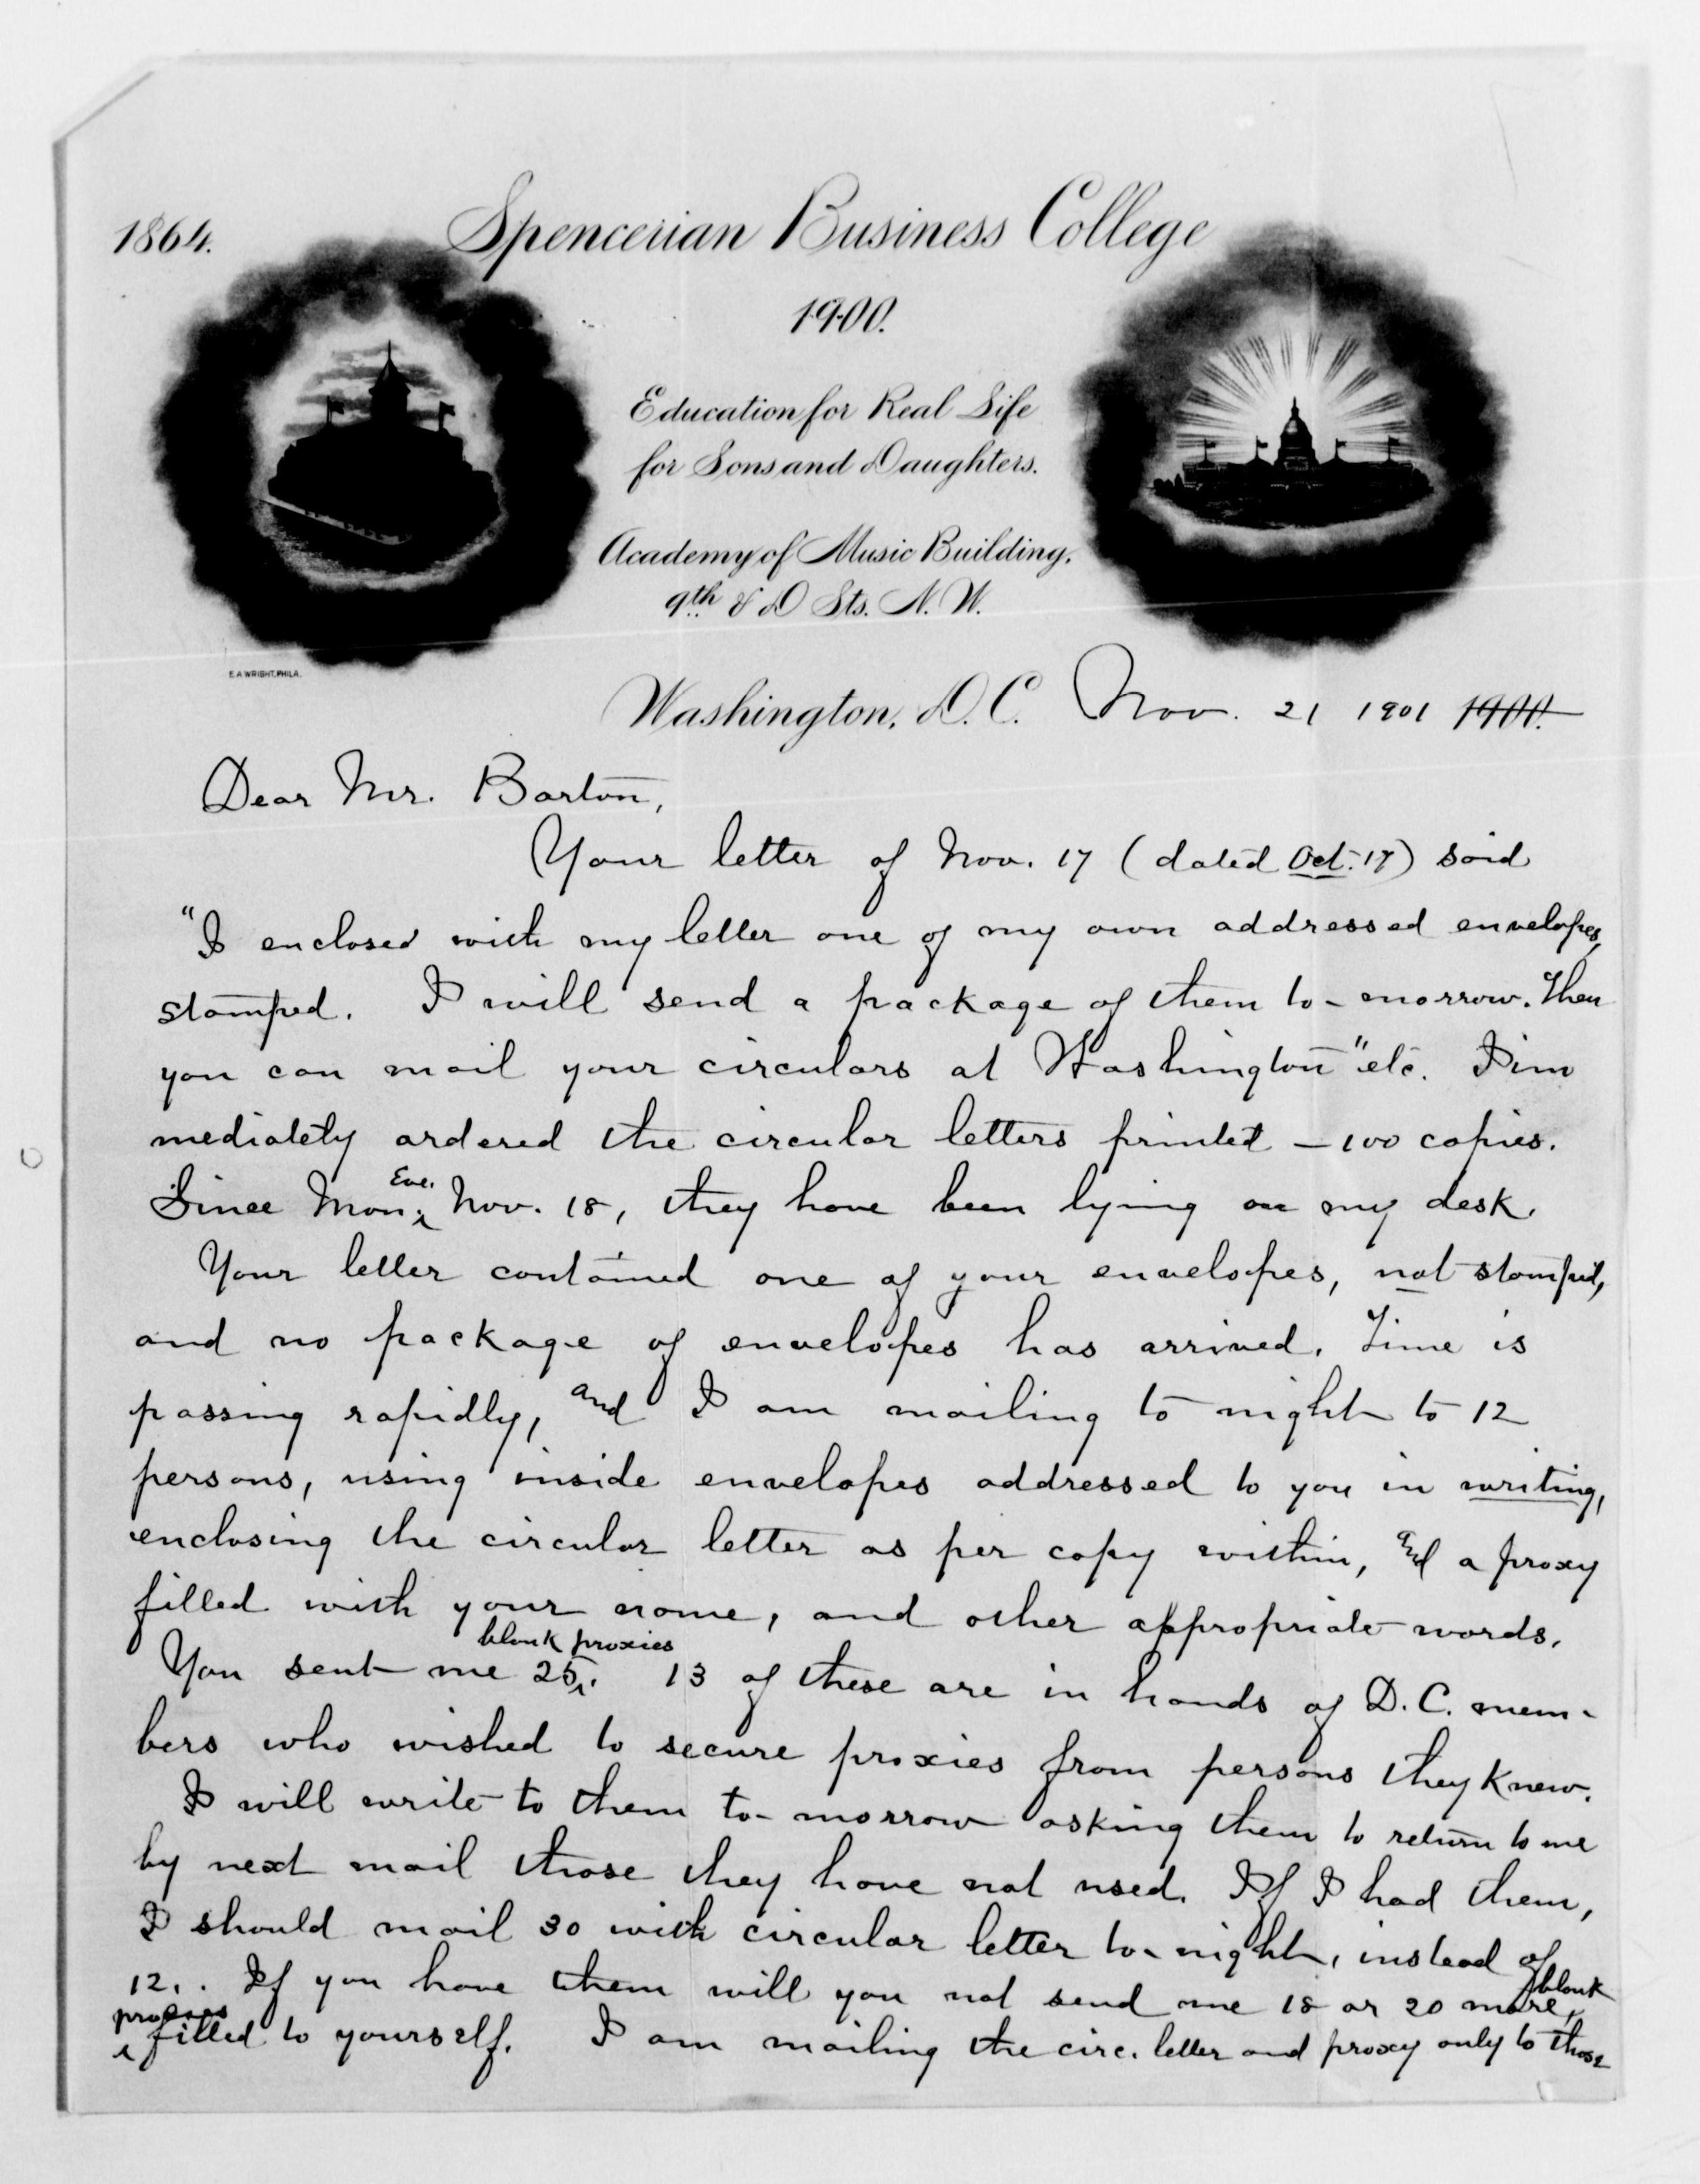 1864.
Spencerian Business College
1900.
Education for Real Life
for Sons and Daughters.
Academy of Music Building,
9th & D Sts. N. W.
E.A. WRIGHT, PHILA.
Washington, D. C. Nov. 21 1901 1900.
Dear Mr. Barton,
Your letter of Nov. 17 (dated Oct. 17) said
"I enclosed with my letter one of my own addressed envelopes,
stamped. I will send a package of them to-morrow. Then
you can mail your circulars at Washington" etc. I im
mediately ordered the circular letters printed – 100 copies.
Since Mon. Eve. Nov. 18, they have been lying on my desk.
Your letter contained one of your envelopes, not stamped,
and no package of envelopes has arrived. Time is
passing rapidly, and I am mailing to night to 12
persons, using inside envelopes addressed to you in writing,
enclosing the circular letter as per copy within, and a proxy
filled with your name, and other appropriate words.
You sent me 25 blank proxies. 13 of these are in hands of D. C. mem-
bers who wished to secure proxies from persons they knew.
I will write to them to-morrow asking them to return to me
by next mail those they have not used. If I had them,
I should mail 30 with circular letter to-night, instead of
12. If you have them will you not send me 18 or 20 more, blank
proxies filled to yourself. I am mailing the circ. letter and proxy only to those